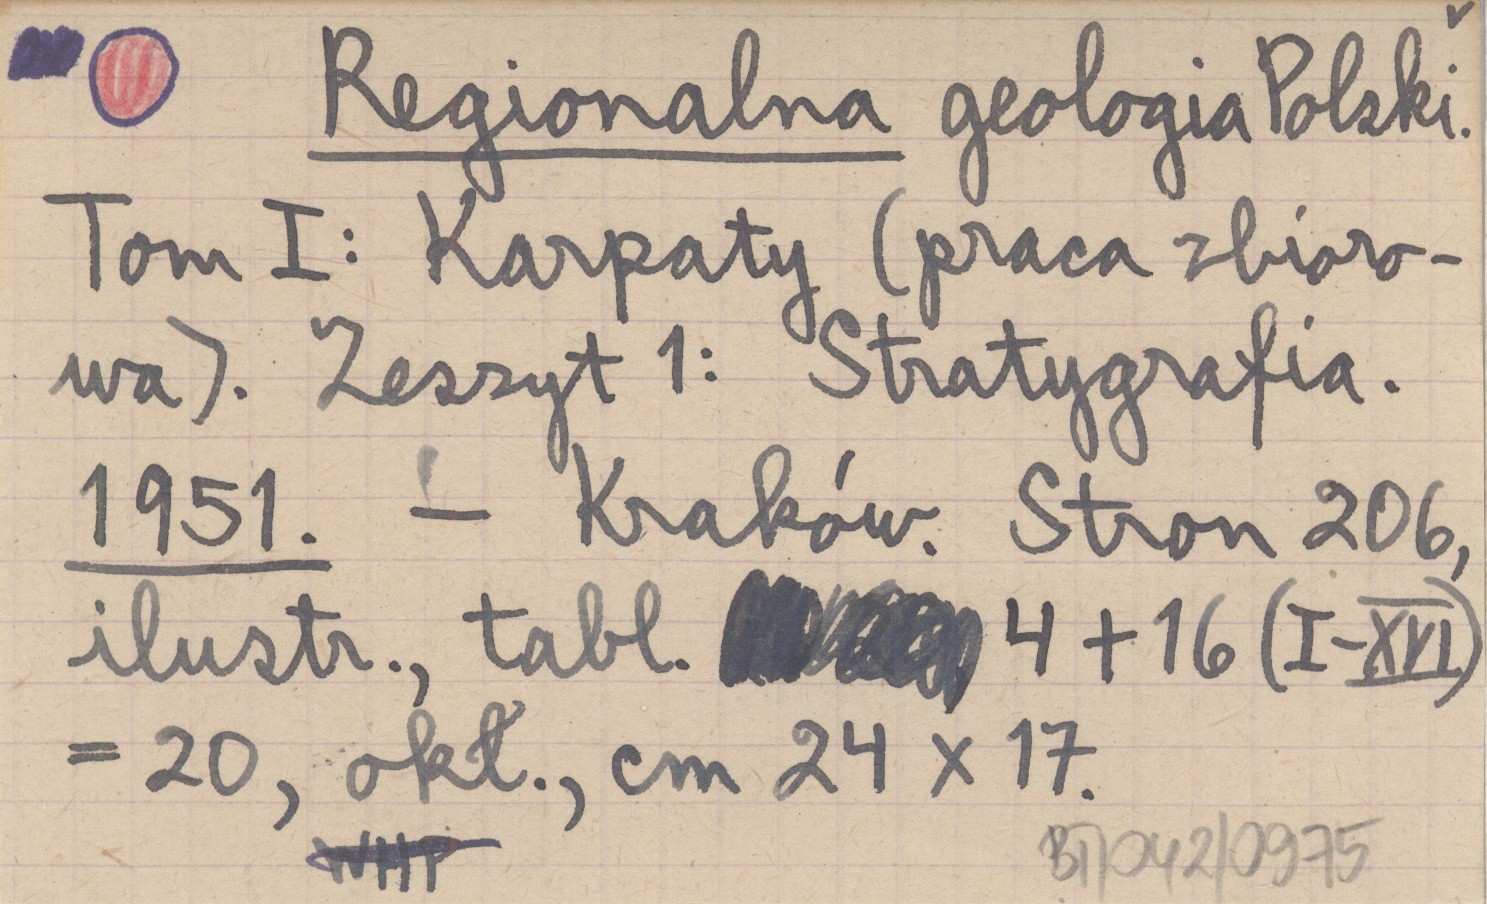 Regionalna geologia Polski.
Tom I: Karpaty (praca zbioro-
wa). Zeszyt 1: Stratygrafia.
1951. — Kraków. Stron 206,
ilustr., tabl. 4 + 16 (I-XVI)
= 20, okł., cm 24 x 17.
WHP
BT/042/0975